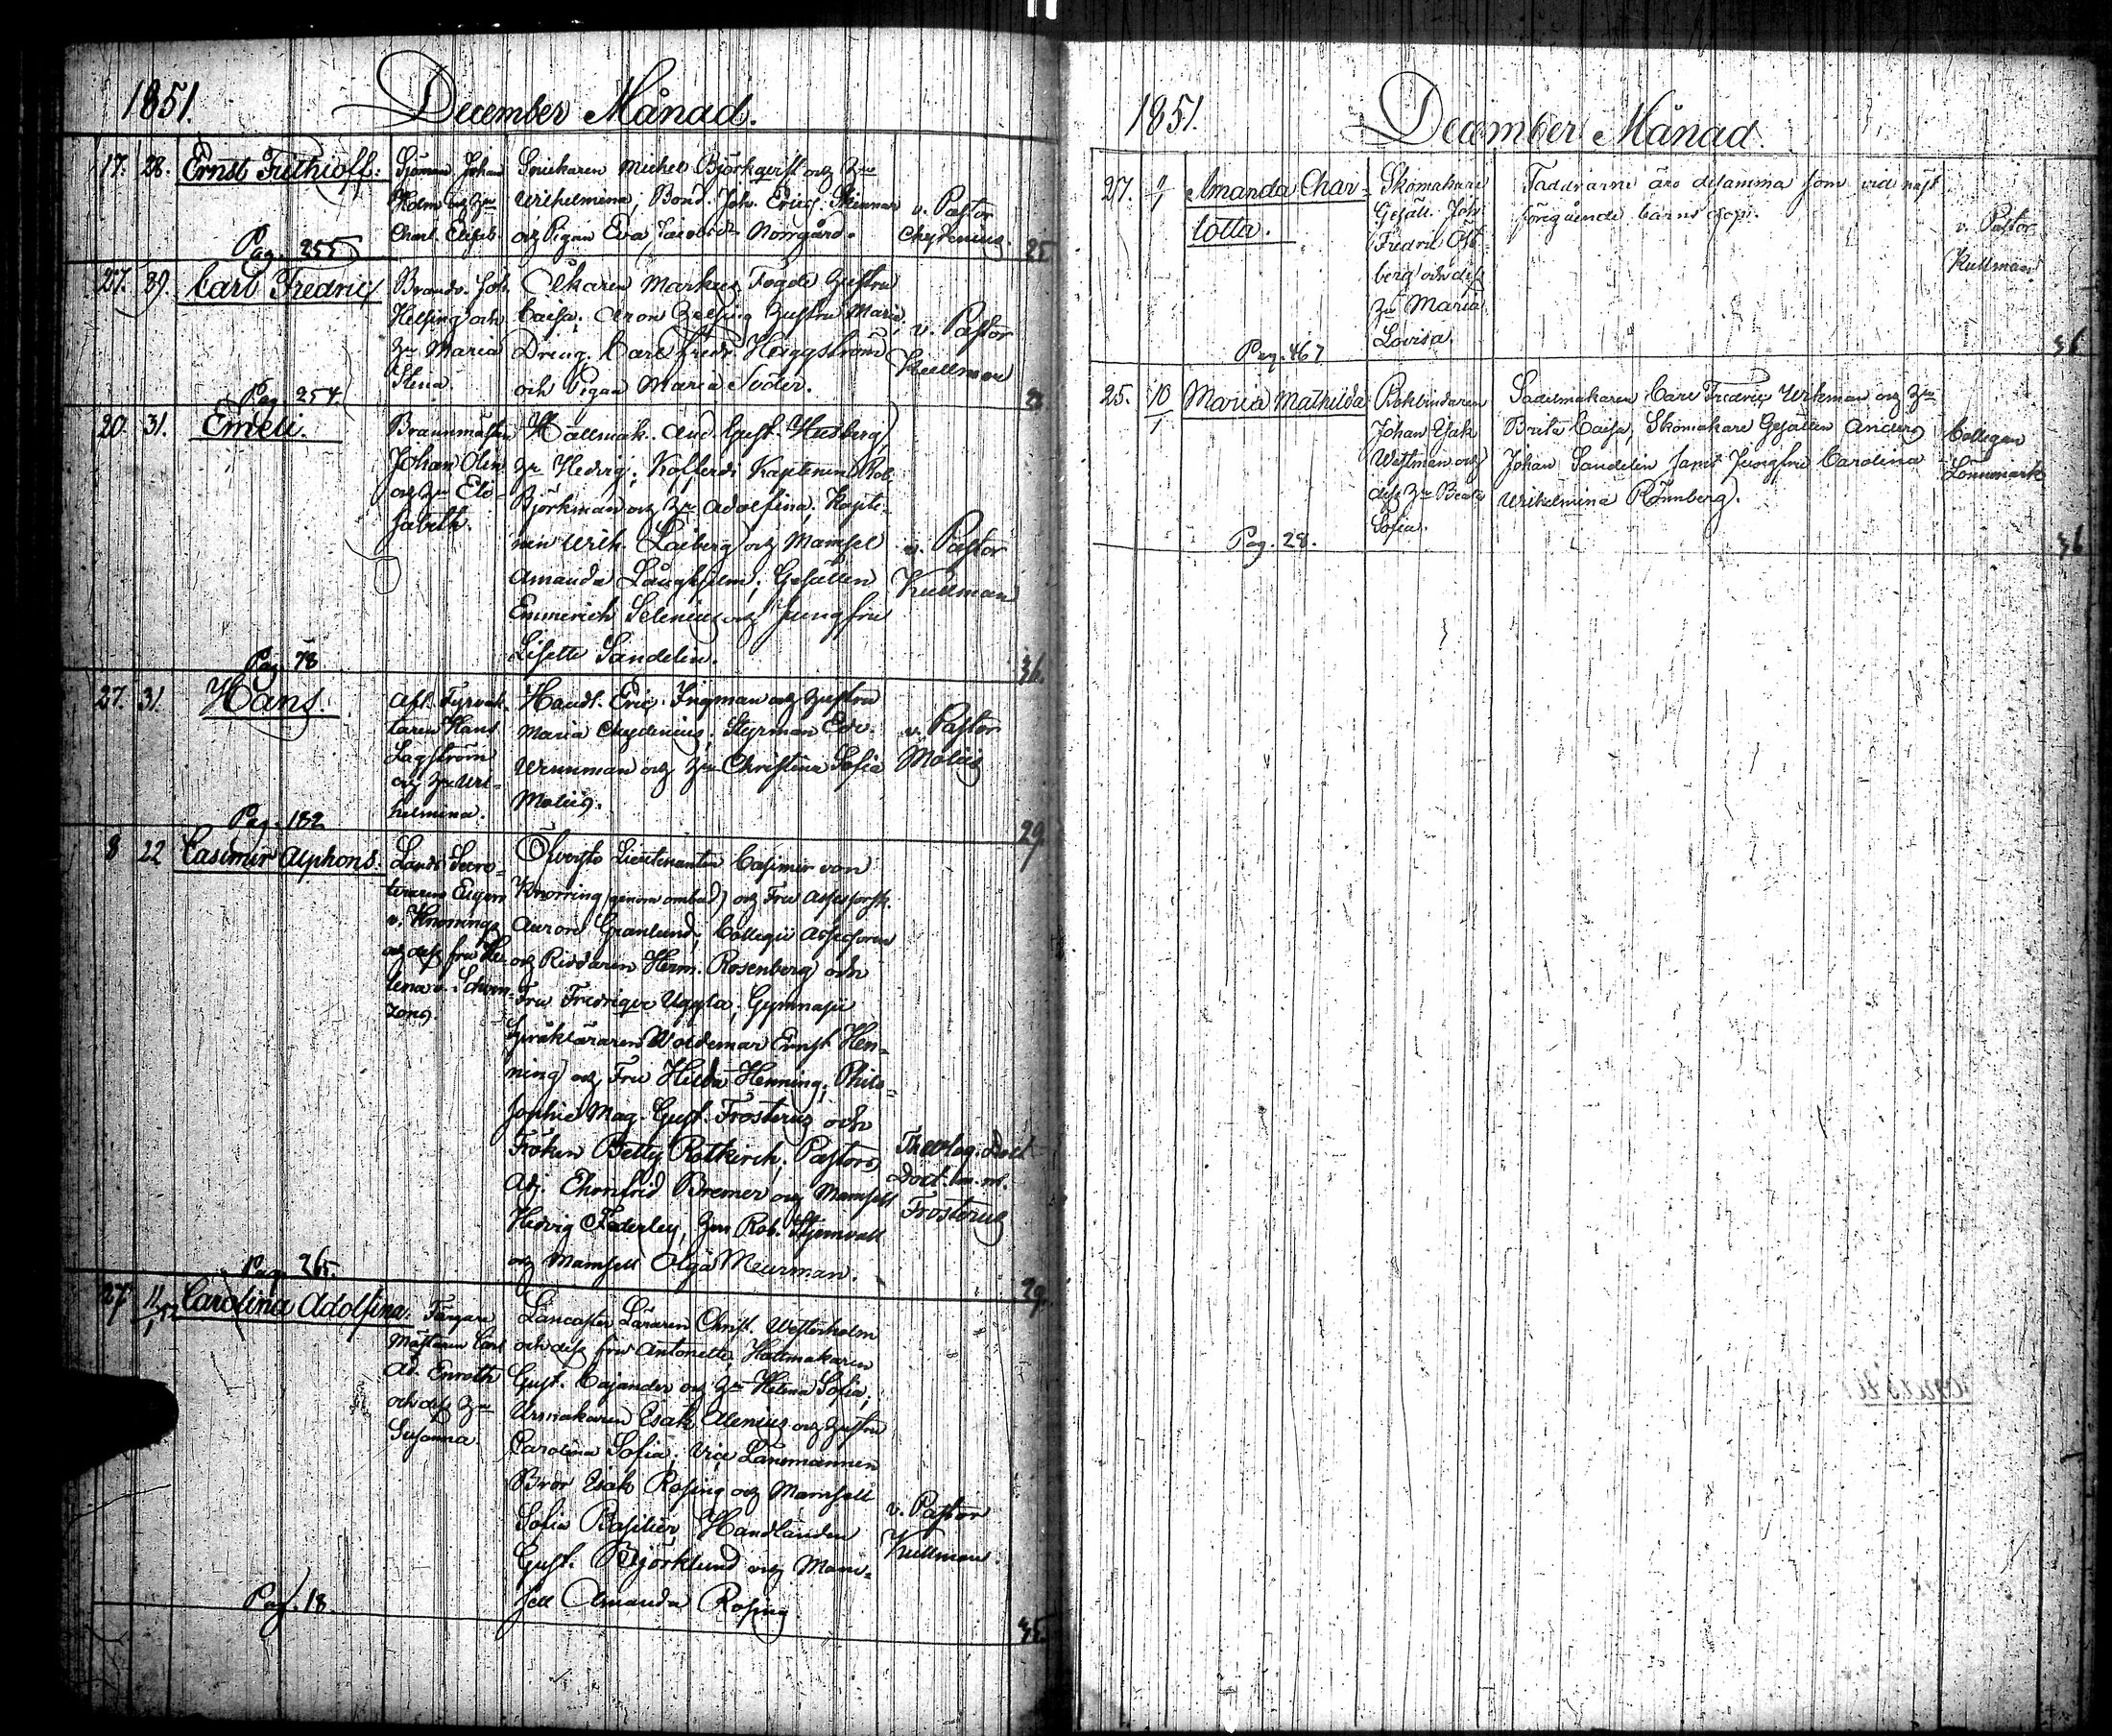 1851. December Månad.
17. 28. Ernst Frithioff.
Sjöman Johan
Holm och Hu
Charl. Elisab.
Snickaren Michel Björkqvist och Hu
Wilhelmina; Bond. Joh. Eric Skinnar
och Pigan Eva Jacobsdr Norrgård.
v. Pastor
Chydenius.
Pag. 255
25
27. 39. Carl Fredric
Brandv. Joh.
Helsing och
Hu Maria
Stina.
Åkaren Markus Fogde Hustru
Caisa; Aron Helsing Hustru Maria,
Dräng. Carl Fredr. Häggström
och Pigan Maria Söder.
v. Pastor
Kullman
Pag. 254
20. 31. Emeli.
Johan Olin
och Hu Eli-
sabeth.
Hattmak. And. Gust. Husberg
Hu Hedvig; Kofferdi Kaptenen Rob.
Björkman och Hu Adolfina, Kapte-
nen Wilh. Laiberg och Mamsel
Amanda Långhjelm; Gesällen
Emmerich Selenius och Jungfru
Lisette Sandelin.
v. Pastor
Kullman
Pag. 78
36.
27. 31. Hans.
Afl. Fyrvak-
taren Hans
Lagström
och Hu Wil-
helmina.
Handl. Eric Ingman och Hustru
Maria Chydenius; Styrman Edv.
Wennman och Hu Christina Sofia
Molis.
v. Pastor
Molis
Pag. 182
29.
8 22 Casimir Alphons.
Lands Secre-
teraren Eugen
v. Knorring
och dess fru He-
lena v. Schvan-
zong.
Öfverste Lieutenanten Casimir von
Knorring (genom ombud) och Fru Assessorsk.
Aurore Granlund; Collegii Assessoren
och Riddaren Herm. Rosenberg och
Fru Fredrique Uggla; Gymnasii
Språkläraren Woldemar Ernst Hen-
ning och Fru Hilda Henning; Philo-
sophie Mag. Gust. Frosterus och
Fröken Betty Rotkirch; Pastors
Adj. Ehonfrid Bremer och Mamsell
Hedvig Federley, Hm Rob. Stjernvall
och Mamsell Olga Meurman.
Theolog.
Doct. m. m.
Frosterus
Pag. 265.
29.
27. 11/1 52 Carolina Adolfina.
Färgare
Mästaren Carl
Ad. Enroth
och dess Hu
Susanna.
Lancaster Läraren Christ. Westerholm
och dess fru Antonette; Hattmakaren
Gust. Cajander och Hu Helena Sofia;
Urmakaren Esak Alenius och Hustru
Carolina Sofia; Vice Länsmannen
Bror Isak Rosing och Mamsell
Sofia Basilier, Handlanden
Gust. Björklund och Mam-
sell Amanda Rosing
v. Pastor
Kullman.
Pag. 18.
35.
1851. December Månad.
27. Amanda Char-
lotta.
Skomakare
Gesäll. Joh.
Fredric Öst-
berg och dess
Hu Maria
Lovisa
Faddrarne äro desamma som vid näst
föregående barns dop.
v. Pastor
Kullman
Pag. 467
36
25. 10/1 Maria Mathilda
Bokbindaren
Johan Isak
Westman och
dess Hu Beata
Sofia.
Sadelmakaren Carl Fredric Wikman och Hu
Brita Caisa, Skomakare Gesällen Anders
Johan Sandelin samt Jungfru Carolina
Wilhelmina Rönnberg.
Collegan
Lönnmark
Pag. 28.
36